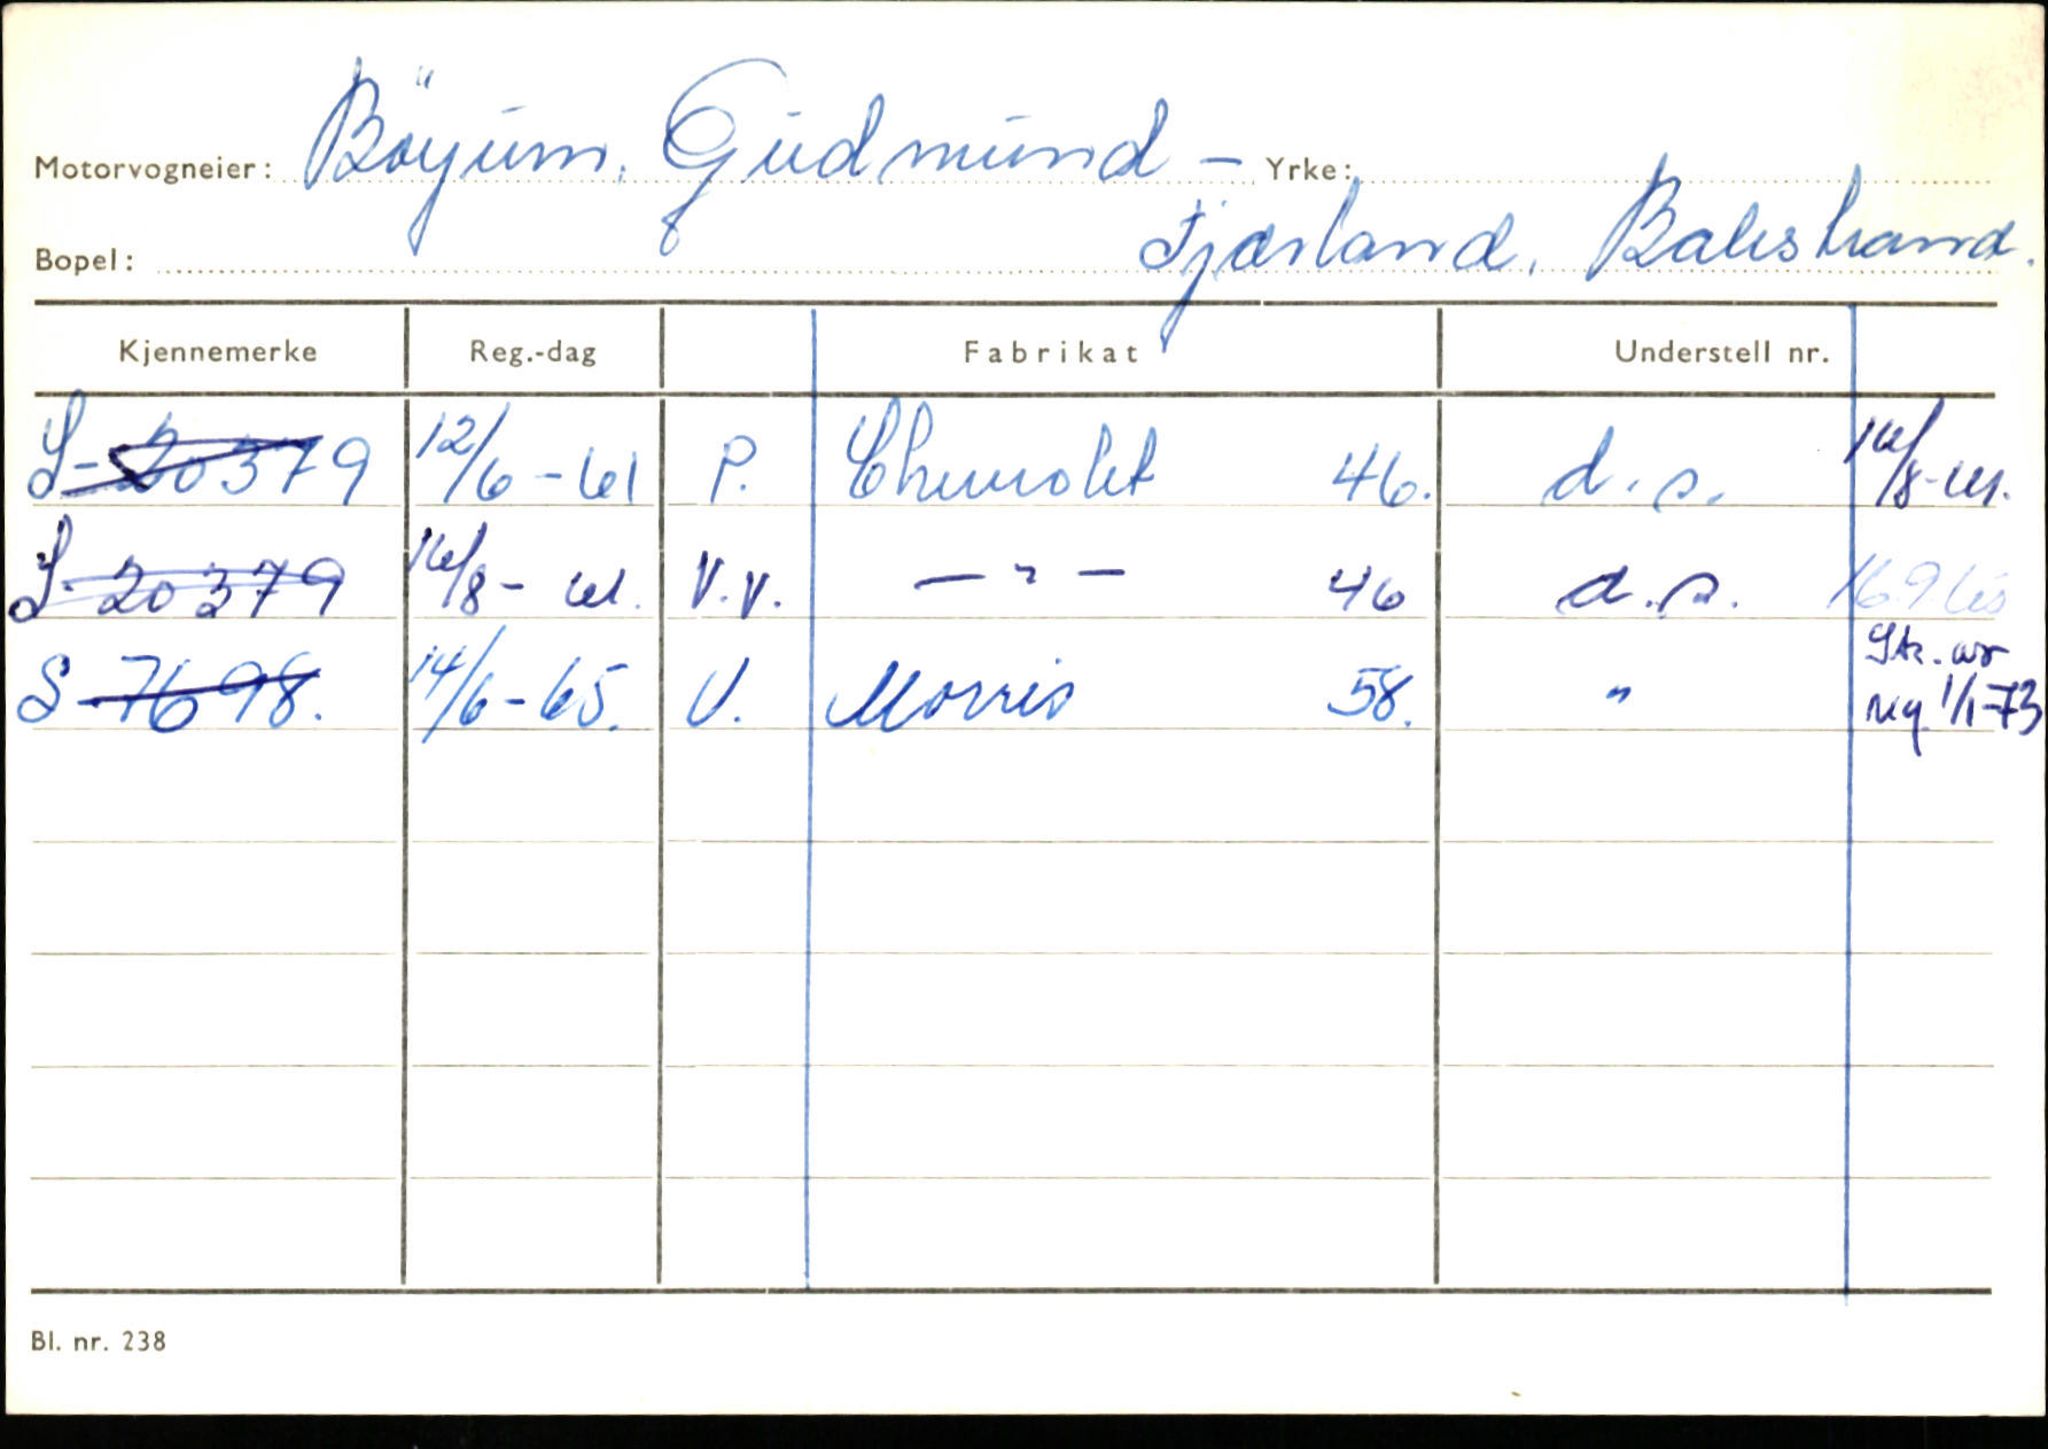 Motorvogneier: Böyum, Gudmund – Yrke:
Bopel: Fjærland, Balestrand.
Kjennemerke Reg.-dag Fabrikat Understell nr.
S-20379 12/6-61 P. Chevrolet 46. d.s. 16/8-61.
S-20379 16/8-61. V.V. —"— 46 d.s. 16.9.65
S-7698. 14/6-65. V. Morris 58. " Stk. av
reg. 1/1-73
Bl. nr. 238